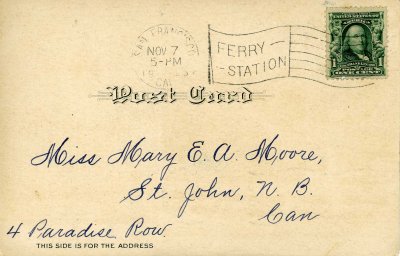 SAN FRANCISCO
NOV 7
5-PM
CAL.
FERRY
STATION
1
ONE CENT
Post Card
Miss Mary E. A. Moore,
St. John, N. B.
Can
4 Paradise Row.
THIS SIDE IS FOR THE ADDRESS